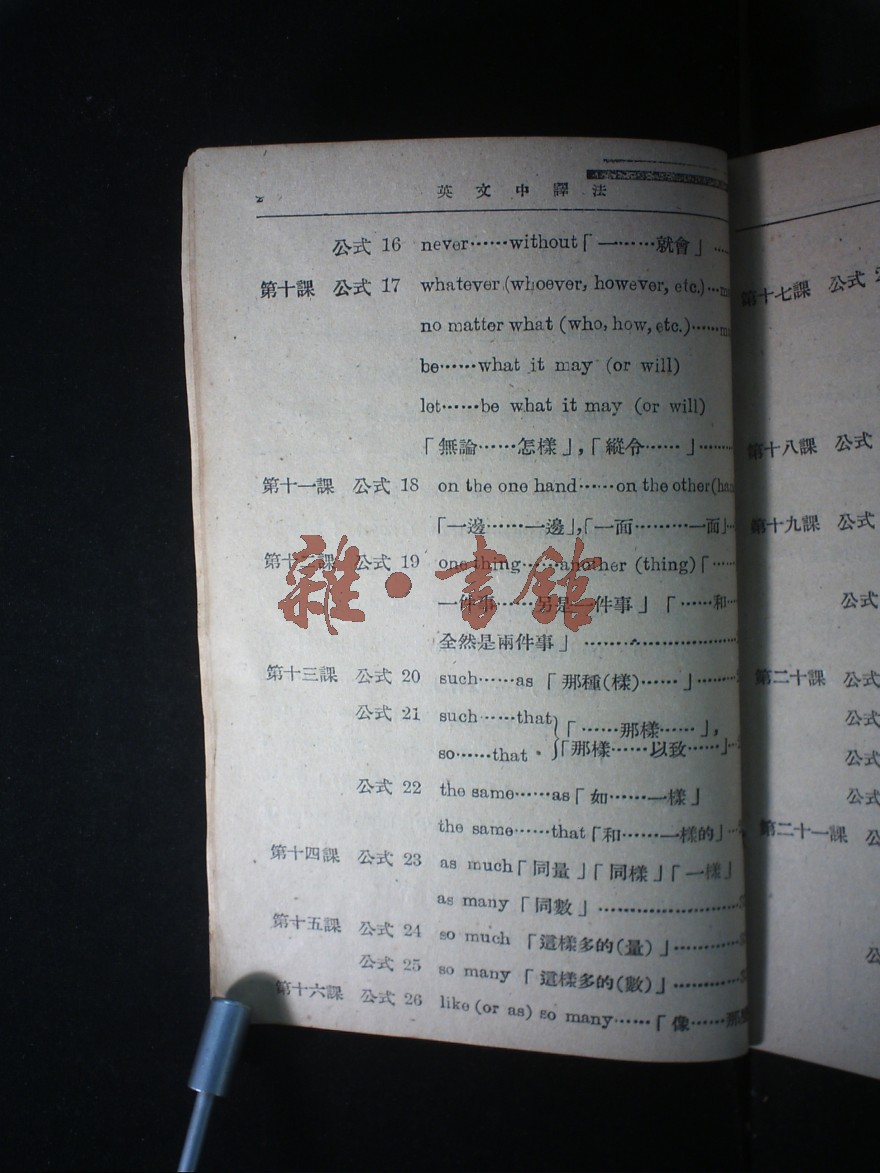 2 英文中譯法
公式 16 never……without「一……就會」……
第十課 公式 17 whatever (whoever, however, etc.)…
no matter what (who, how, etc.)……
be……what it may (or will)
let……be what it may (or will)
「無論……怎樣」,「縱令……」………
第十一課 公式 18 on the one hand……on the other
「一邊……一邊」,「一面………一面」…
第十二課 公式 19 one thing……another (thing)「……
一件事……另是一件事」「……和…
全然是兩件事」………………
第十三課 公式 20 such……as「那種(樣)……」………
公式 21 such……that
「……那樣……」,
so……that
「那樣……以致……」
公式 22 the same……as「如……一樣」
the same……that「和……一樣的」…
第十四課 公式 23 as much「同量」「同樣」「一樣」
as many「同數」………………
第十五課 公式 24 so much「這樣多的(量)」…………
公式 25 so many「這樣多的(數)」…………
第十六課 公式 26 like (or as) so many……「像……那
第十七課 公式
第十八課 公式
第十九課 公式
公式
第二十課 公式
公式
公式
公式
第二十一課
雜·書館